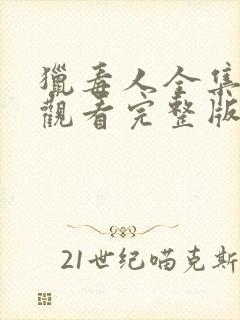 獵毒人全集
觀看完整版
21世纪喵克斯